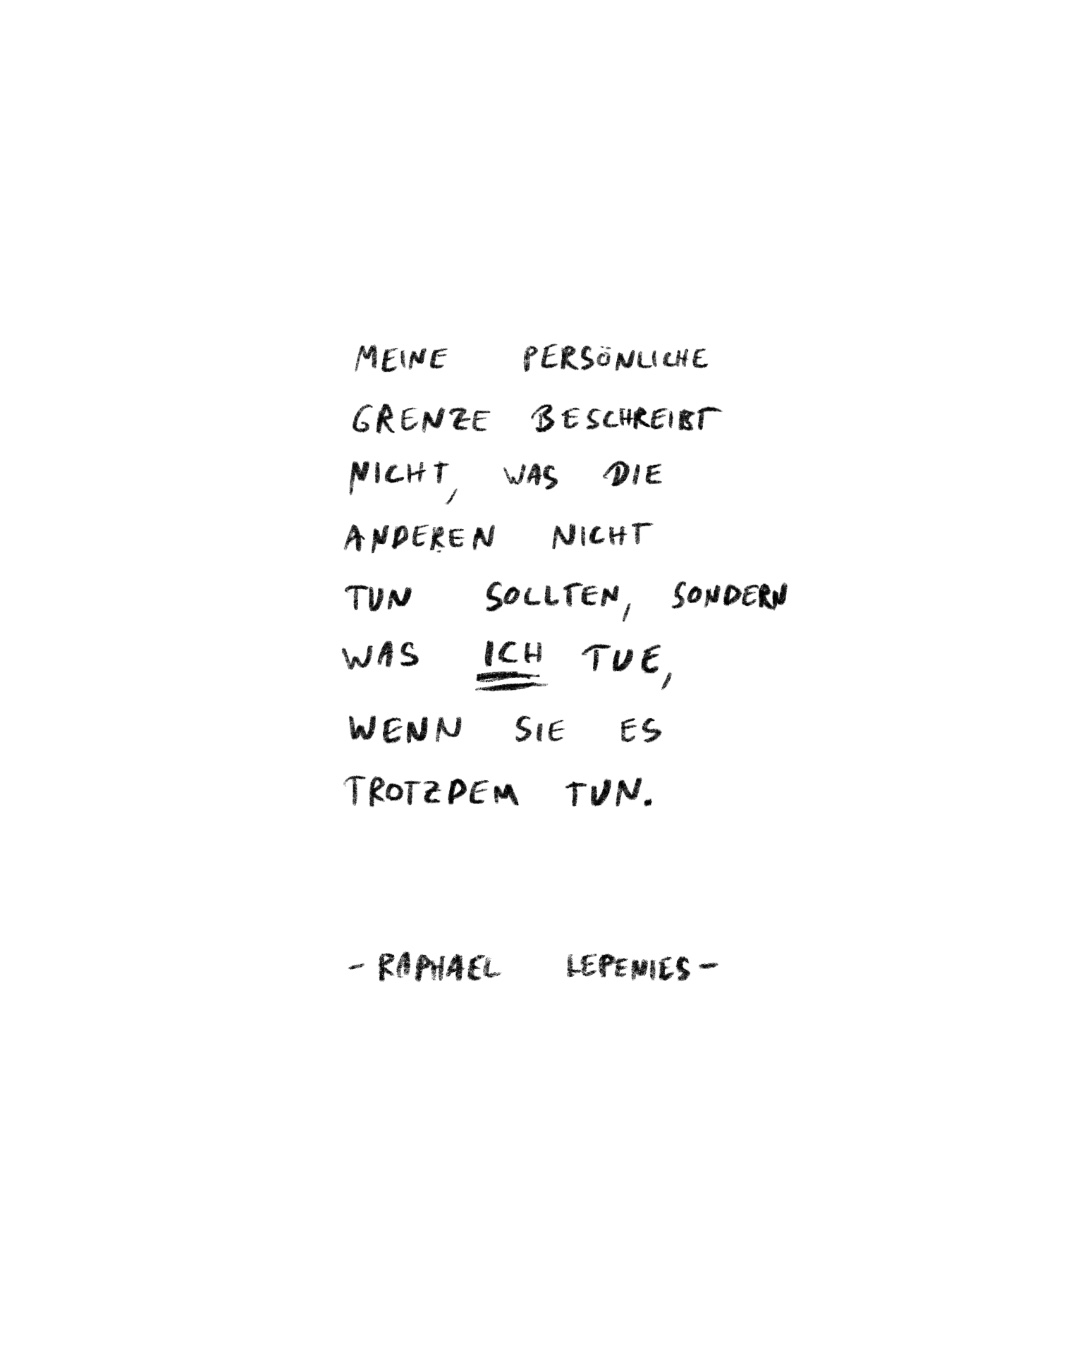 MEINE PERSÖNLICHE
GRENZE BESCHREIBT
NICHT, WAS DIE
ANDEREN NICHT
TUN SOLLTEN, SONDERN
WAS ICH TUE,
WENN SIE ES
TROTZDEM TUN.
- RAPHAEL LEPENIES -